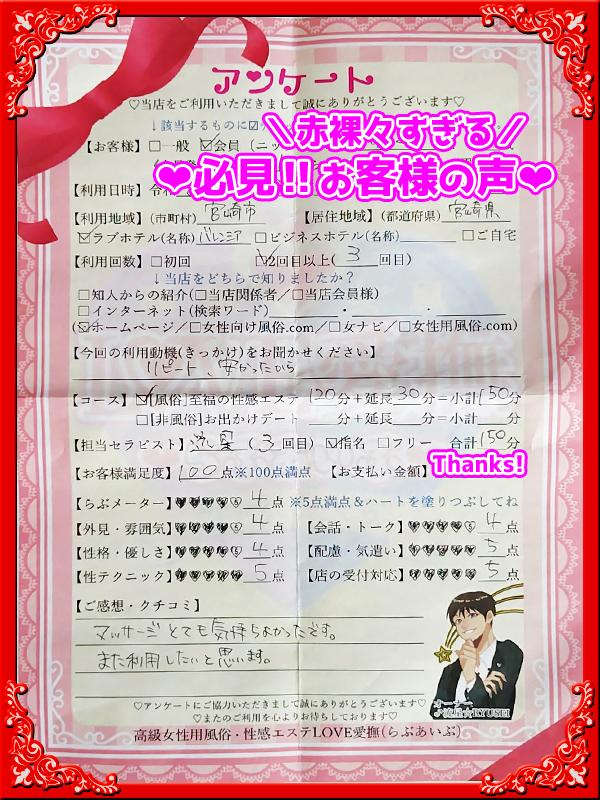 アンケート
♡当店をご利用いただきまして誠にありがとうございます♡
↓該当するものに☑
＼赤裸々すぎる／
❤必見!!お客様の声❤
【お客様】□一般 ☑会員 (ニッ
【利用日時】
【利用地域】(市町村) 宮崎市 【居住地域】(都道府県) 宮崎県
☑ラブホテル(名称) バレンシア □ビジネスホテル(名称) □ご自宅
【利用回数】□初回 ☑2回目以上( 3 回目)
↓当店をどちらで知りましたか？
□知人からの紹介(□当店関係者／□当店会員様)
□インターネット(検索ワード) ・ ・
(☑ホームページ／□女性向け風俗.com／□女ナビ／□女性用風俗.com)
【今回の利用動機(きっかけ)をお聞かせください】
リピート、安かったから
【コース】☑[風俗]至福の性感エステ 120分＋延長30分＝小計150分
□[非風俗]お出かけデート 分＋延長 分＝小計 分
【担当セラピスト】流星 ( 3 回目) ☑指名 □フリー 合計150分
【お客様満足度】100点※100点満点 【お支払い金額】
Thanks!
【らぶメーター】 4点 ※5点満点＆ハートを塗りつぶしてね
【外見・雰囲気】 4点 【会話・トーク】 4点
【性格・優しさ】 4点 【配慮・気遣い】 5点
【性テクニック】 5点 【店の受付対応】 5点
【ご感想・クチコミ】
マッサージとても気持ちよかったです。
また利用したいと思います。
オーナー
♂流星☆RYUSEI
♡アンケートにご協力いただきまして誠にありがとうございます♡
♡またのご利用を心よりお待ちしております♡
高級女性用風俗・性感エステLOVE愛撫(らぶあいぶ)